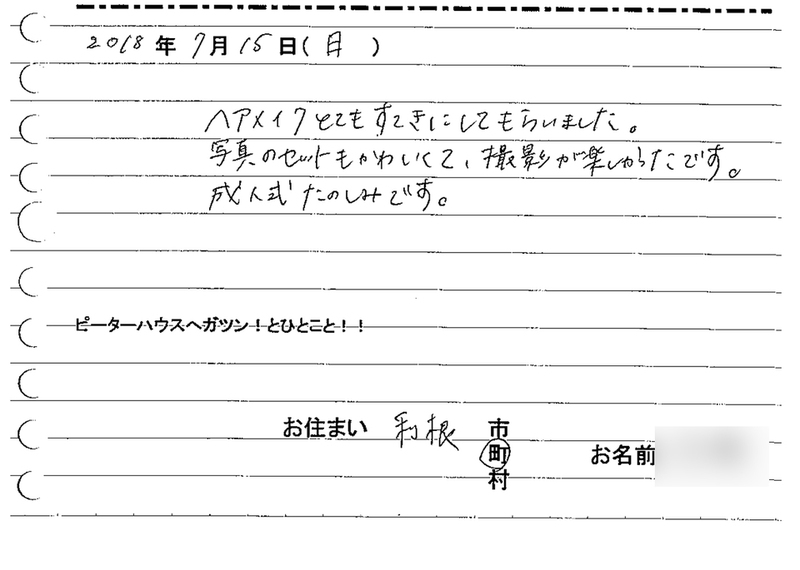 2018年7月15日(日)
ヘアメイクとてもすてきにしてもらいました。
写真のセットもかわいくて、撮影が楽しかったです。
成人式たのしみです。
ピーターハウスへガツン！とひとこと！！
お住まい 利根 市
町 お名前
村